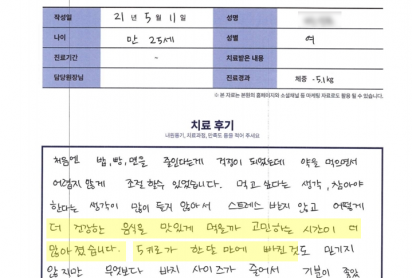 작성일 21년 5월 11일 성명
나이 만 25세 성별 여
진료기간 - 치료받은 내용
담당원장님 진료경과 체중 -5.1kg
※ 본 자료는 본원의 홈페이지와 소셜채널 등 마케팅 자료로도 활용 될 수 있습니다.
치료 후기
내원동기, 치료과정, 만족도 등을 적어 주세요
처음엔 밥, 빵, 면을 줄인다는게 걱정이 되었는데 약을 먹으면서
어렵지 않게 조절 할수 있었습니다. 먹고 싶다는 생각, 참아야
한다는 생각이 많이 들지 않아서 스트레스 받지 않고 어떻게
더 건강한 음식을 맛있게 먹을까 고민하는 시간이 더
많아졌습니다. 5키로가 한달 만에 빠진것도 믿기지
않지만 무엇보다 바지 사이즈가 줄어서 기분이 좋았